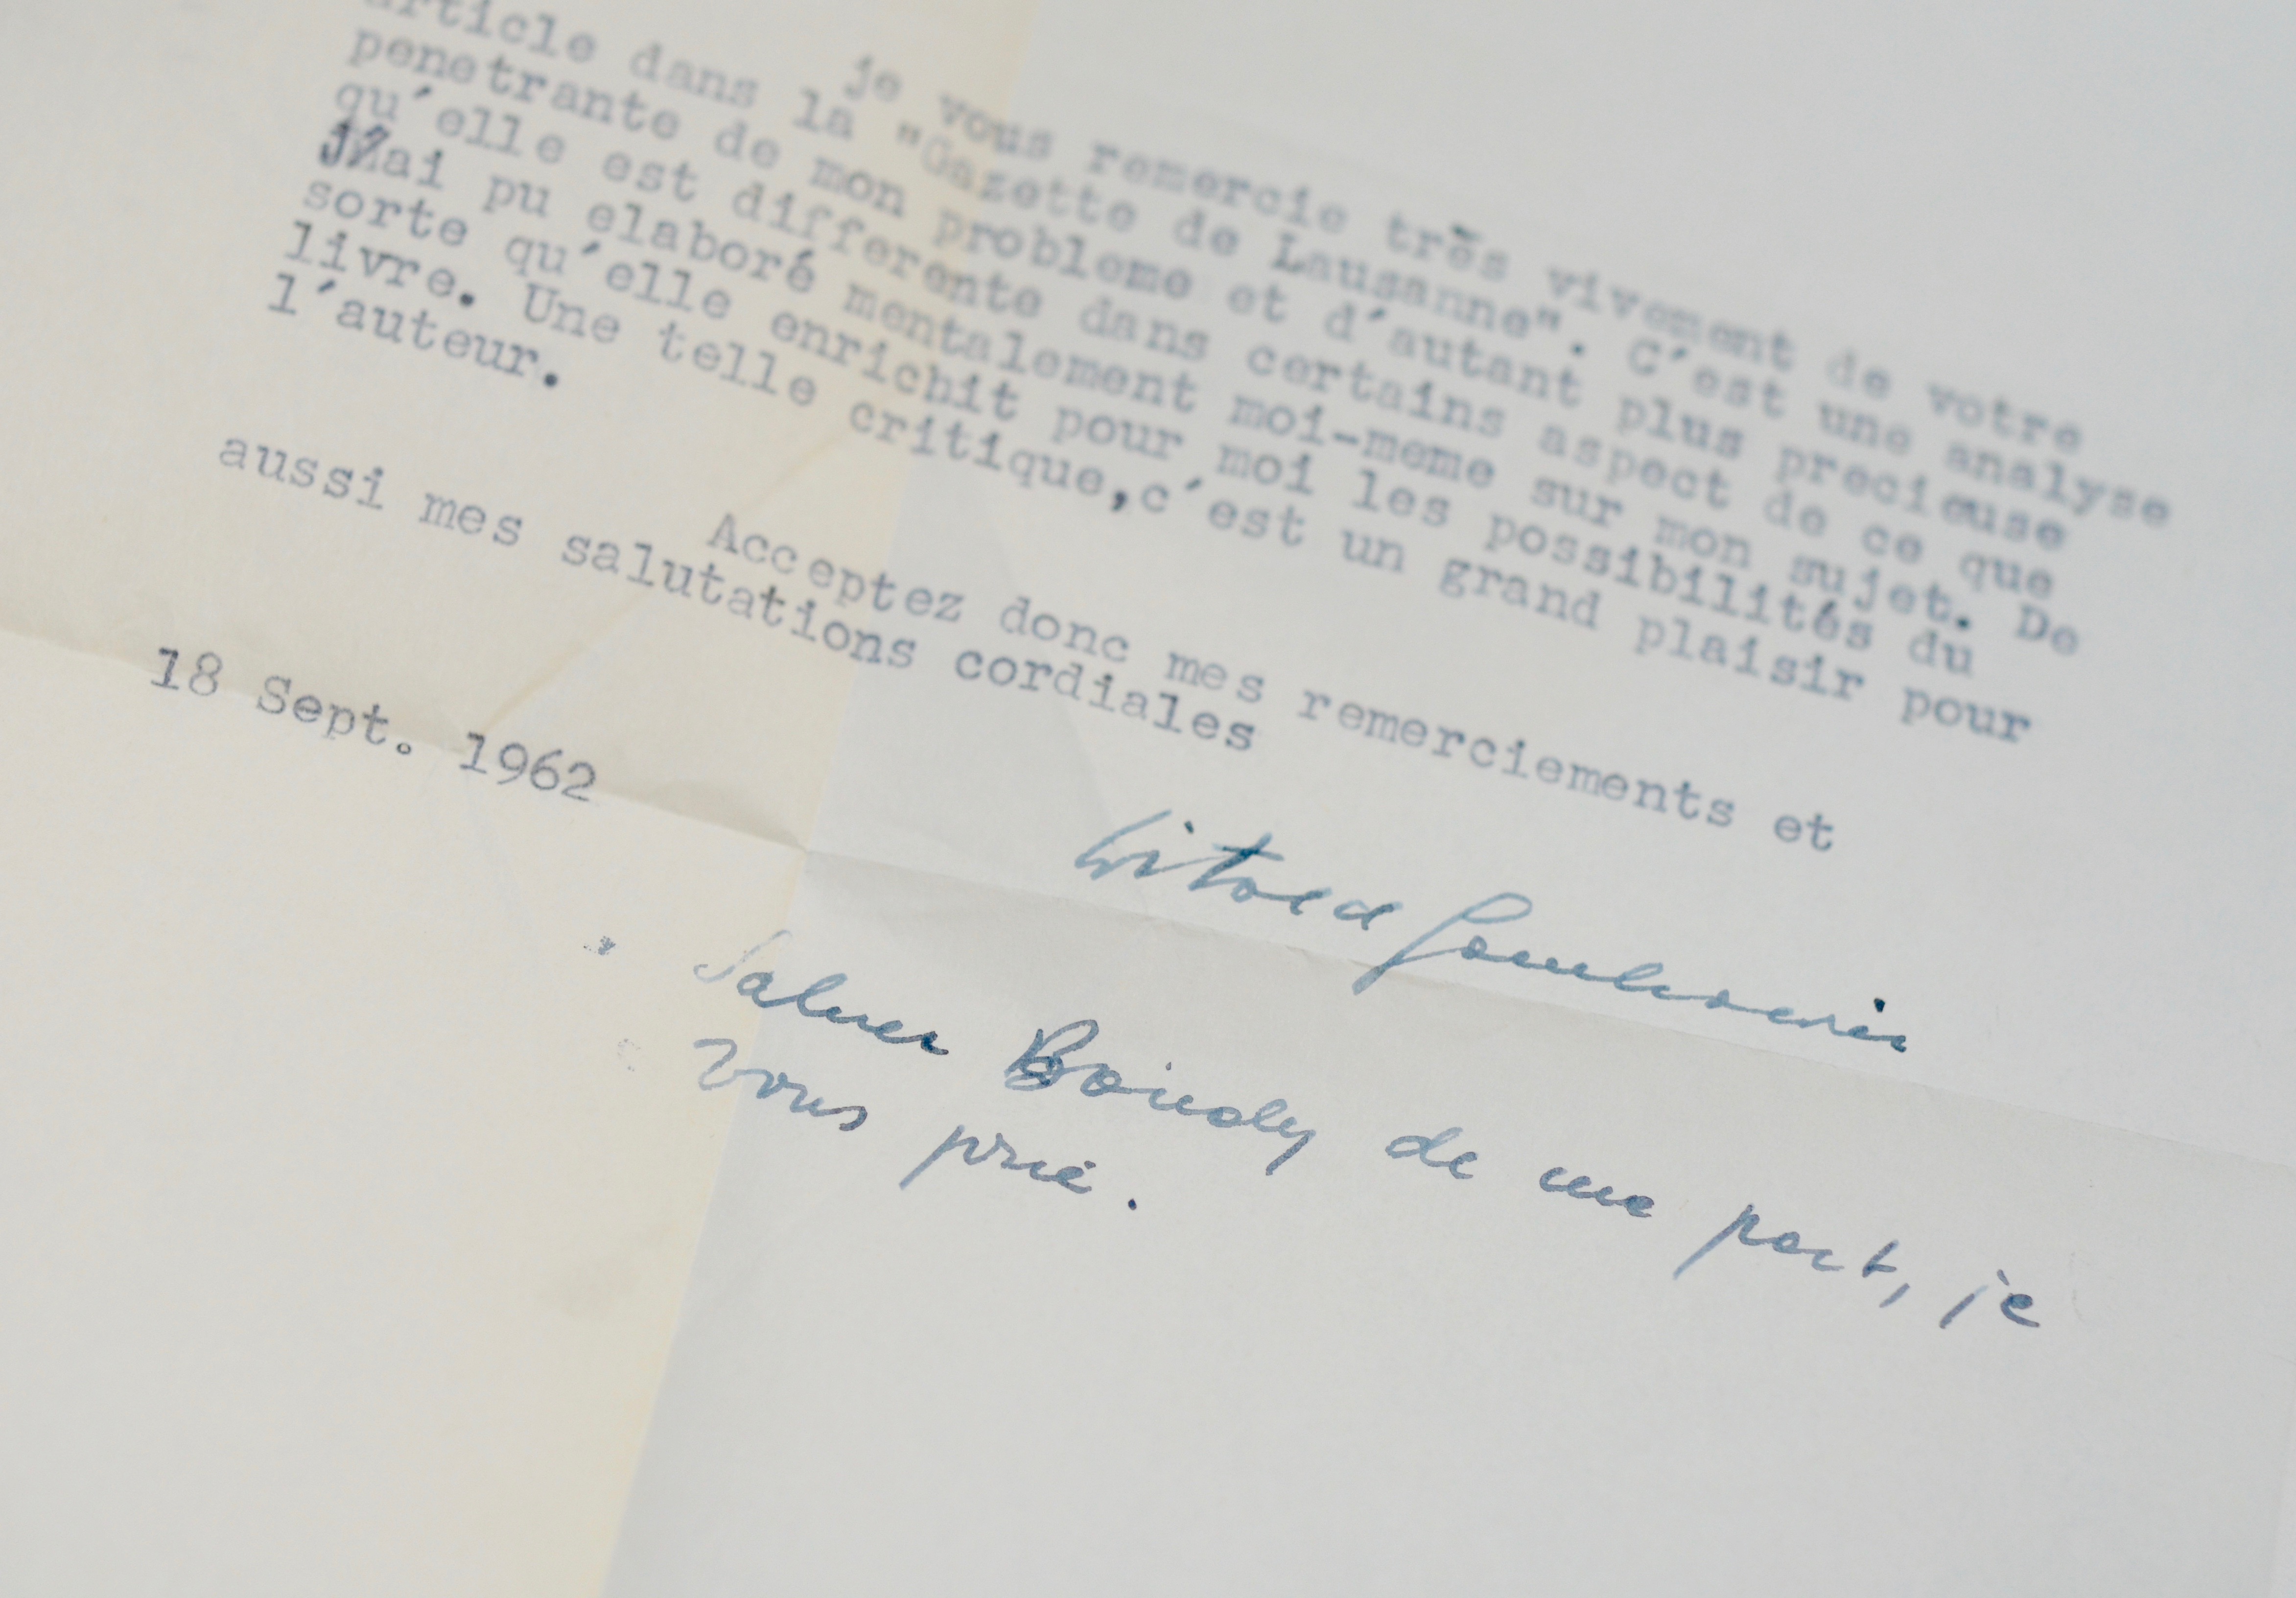 je vous remercie très vivement de votre
article dans la "Gazette de Lausanne". C'est une analyse
penetrante de mon probleme et d'autant plus precieuse
qu'elle est differente dans certains aspect de ce que
j'ai pu elaboré mentalement moi-meme sur mon sujet. De
sorte qu'elle enrichit pour moi les possibilités du
livre. Une telle critique,c'est un grand plaisir pour
l'auteur.
Acceptez donc mes remerciements et
aussi mes salutations cordiales
18 Sept. 1962
Witold Gombrowicz
Saluer Bondy de me part, je
vous prie.